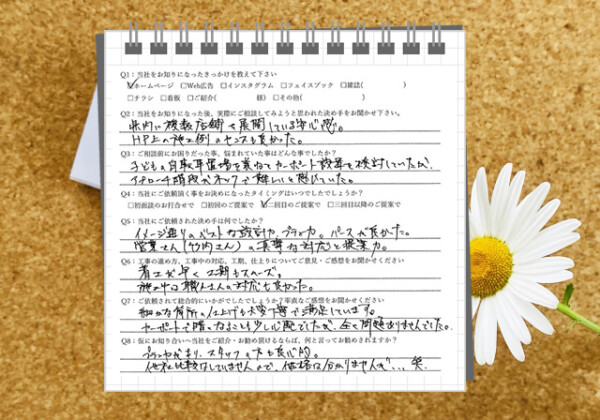 Q1：当社をお知りになったきっかけを教えて下さい
☑ホームページ □Web広告 □インスタグラム □フェイスブック □雑誌( )
□チラシ □看板 □ご紹介( 様) □その他( )
Q2：当社をお知りになった後、実際にご相談してみようと思われた決め手をお聞かせ下さい。
県内に複数店舗を展開している安心感。
HP上の施工例のセンスも良かった。
Q3：ご相談前にお困りだった事、悩まれていた事はどんな事でしたか？
子どもの自転車置場を兼ねてカーポート設置を検討していたが、
イナロー4段がネックで難しいと感じていた。
Q4：当社にご依頼頂く事をお決めになったタイミングはいつでしたでしょうか？
□初面談のお打合せで □初回のご提案で ☑二回目のご提案で □三回目以降のご提案で
Q5：当社にご依頼された決め手は何でしたか？
イメージ通りのベストな設計力、プラン力。パースが良かった。
営業さん(竹内さん)の真摯な対応と提案力。
Q6：工事の進め方、工事中の対応、工期、仕上りについてご意見・ご感想をお聞かせください
着工が早く工期もスムーズ。
施工中の職人さんの対応も良かった。
Q7：ご依頼されて総合的にいかがでしたでしょうか？率直なご感想をお聞かせください
細かな箇所の仕上げも大変丁寧で満足しています。
カーポートで暗くなることも少し心配でしたが、全く問題ありませんでした。
Q8：仮にお知り合いへ当社をご紹介・お勧め頂けるならば、何と言ってお勧めされますか？
プランセがあり、スタッフの方も良心的。
他社比較はしていませんので、価格は分かりませんが... 笑